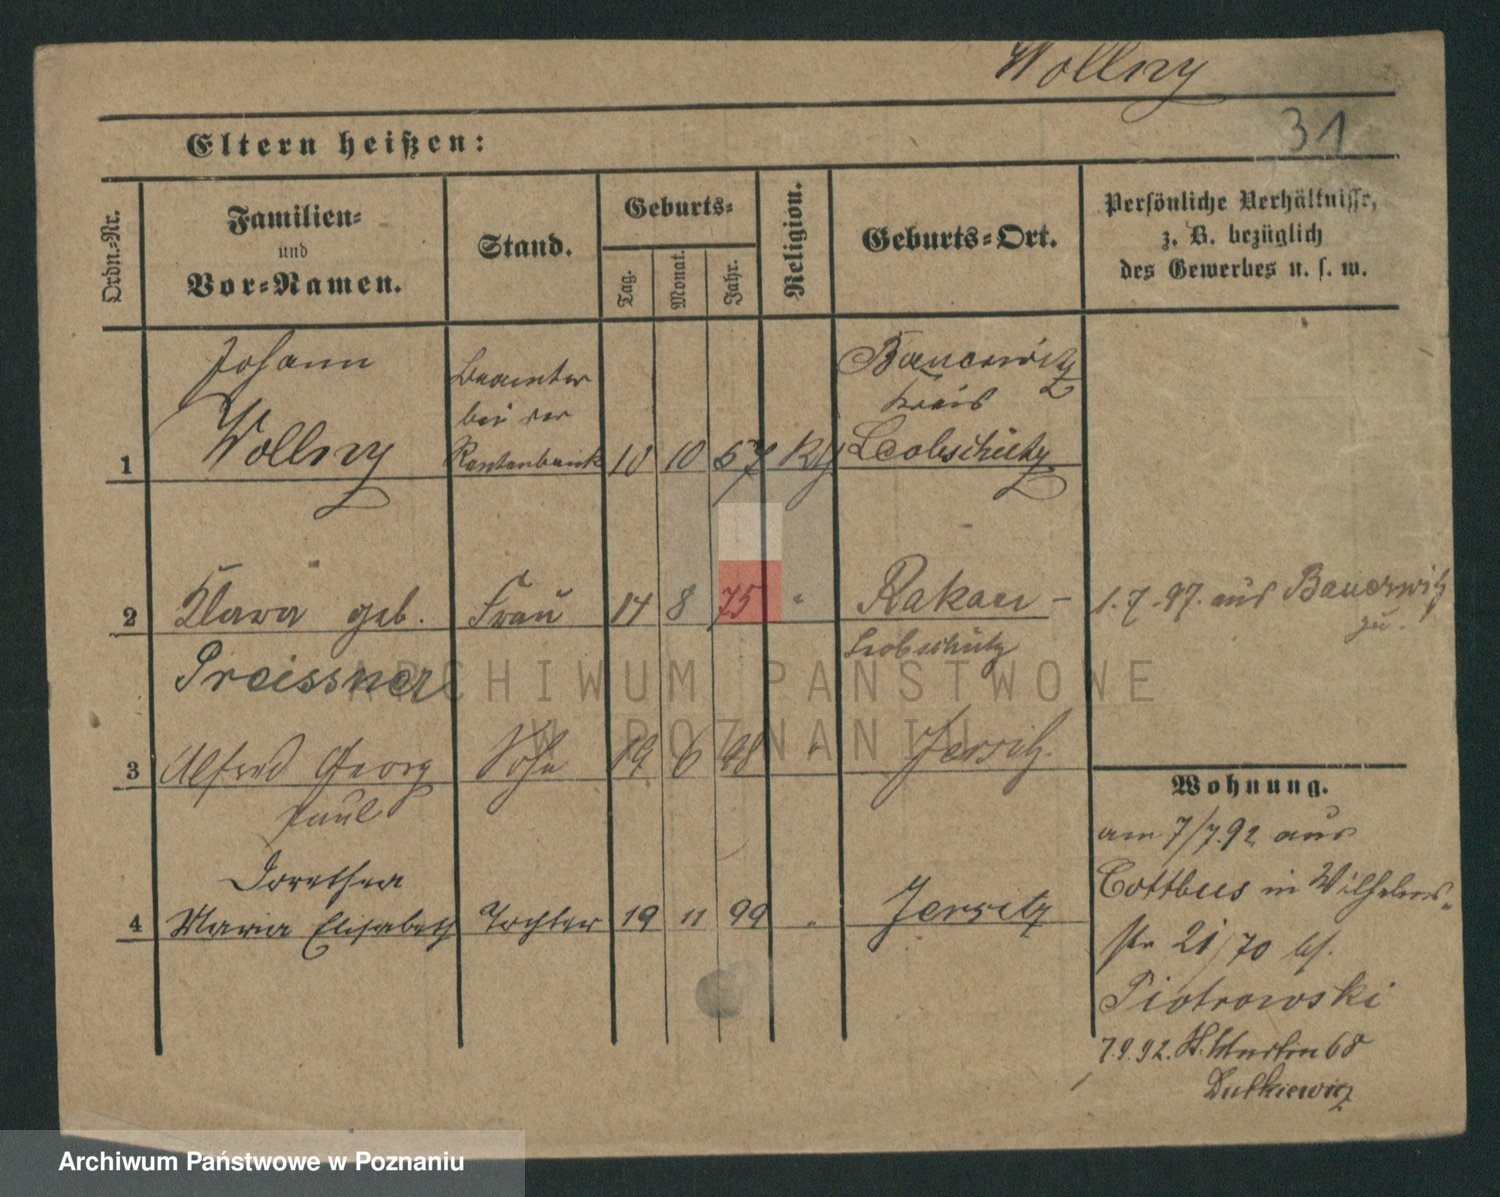 Wollny
31
Eltern heißen:
Ordn.-Nr.
Familien-
und
Vor-Namen.
Stand.
Geburts-
Tag.
Monat.
Jahr.
Religion.
Geburts-Ort.
Persönliche Verhältnisse,
z. B. bezüglich
des Gewerbes u. s. w.
1
Johann
Wollny
Beamter
bei der
Rentenbank
10 10 57
Bauerwitz
Kreis
Leobschütz
2
Klara geb.
Preissner
Frau
14 8 75
"
Rakau -
Leobschütz
1.7.97. aus Bauerwitz
zu.
3
Alfred Georg
Paul
Sohn
19 6 98
"
Jersitz.
4
Dorothea
Maria Elisabeth
Tochter
19 11 99
"
Jersitz
Wohnung.
am 7/7.92 aus
Cottbus in Wilhelms-
str 21/70 bf.
Piotrowski
7.9.92. St. Martin 68
Dutkiewicz
ARCHIWUM PAŃSTWOWE
W POZNANIU
Archiwum Państwowe w Poznaniu